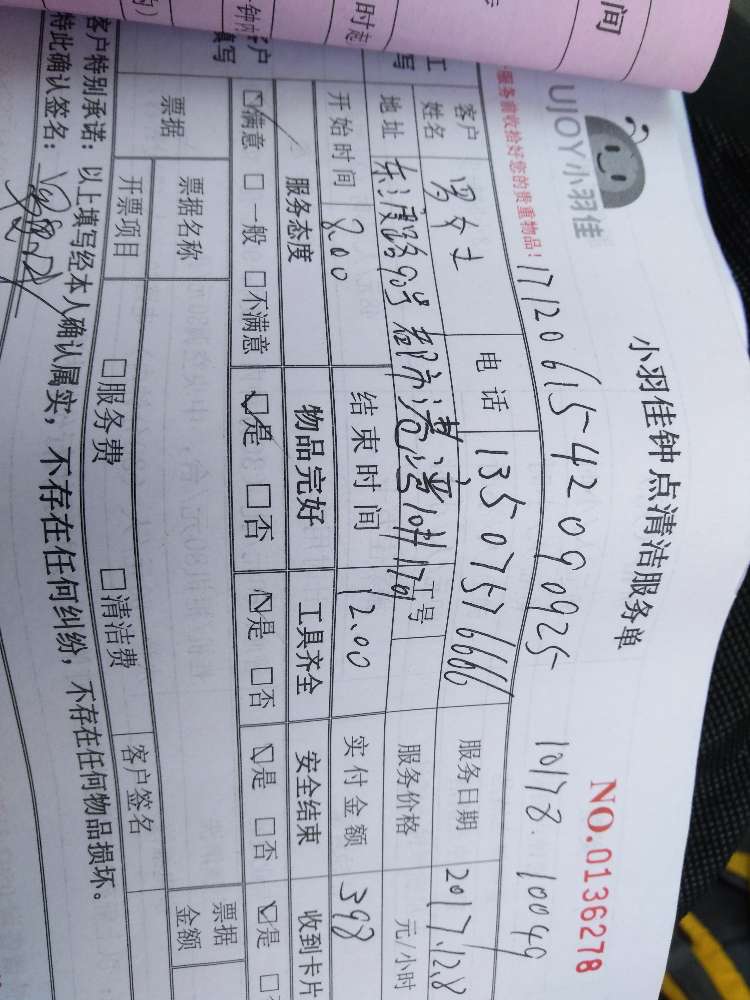 间
时
UJOY小羽佳
小羽佳钟点清洁服务单
NO.0136278
服务前收拾好您的贵重物品！
1712061542090925 10178. 10049
客户姓名 电话 13507576666 服务日期 2017.12.8
地址 工号 服务价格 元/小时
开始时间 8.00 结束时间 12.00 实付金额 398
服务态度 物品完好 工具齐全 安全结束 收到卡片
☑满意 □一般 □不满意 ☑是 □否 ☑是 □否 ☑是 □否 ☑是 □
票据 票据名称 票据金额
开票项目 □服务费 □清洁费 客户签名
客户特别承诺：以上填写经本人确认属实，不存在任何纠纷，不存在任何物品损坏。
特此确认签名：